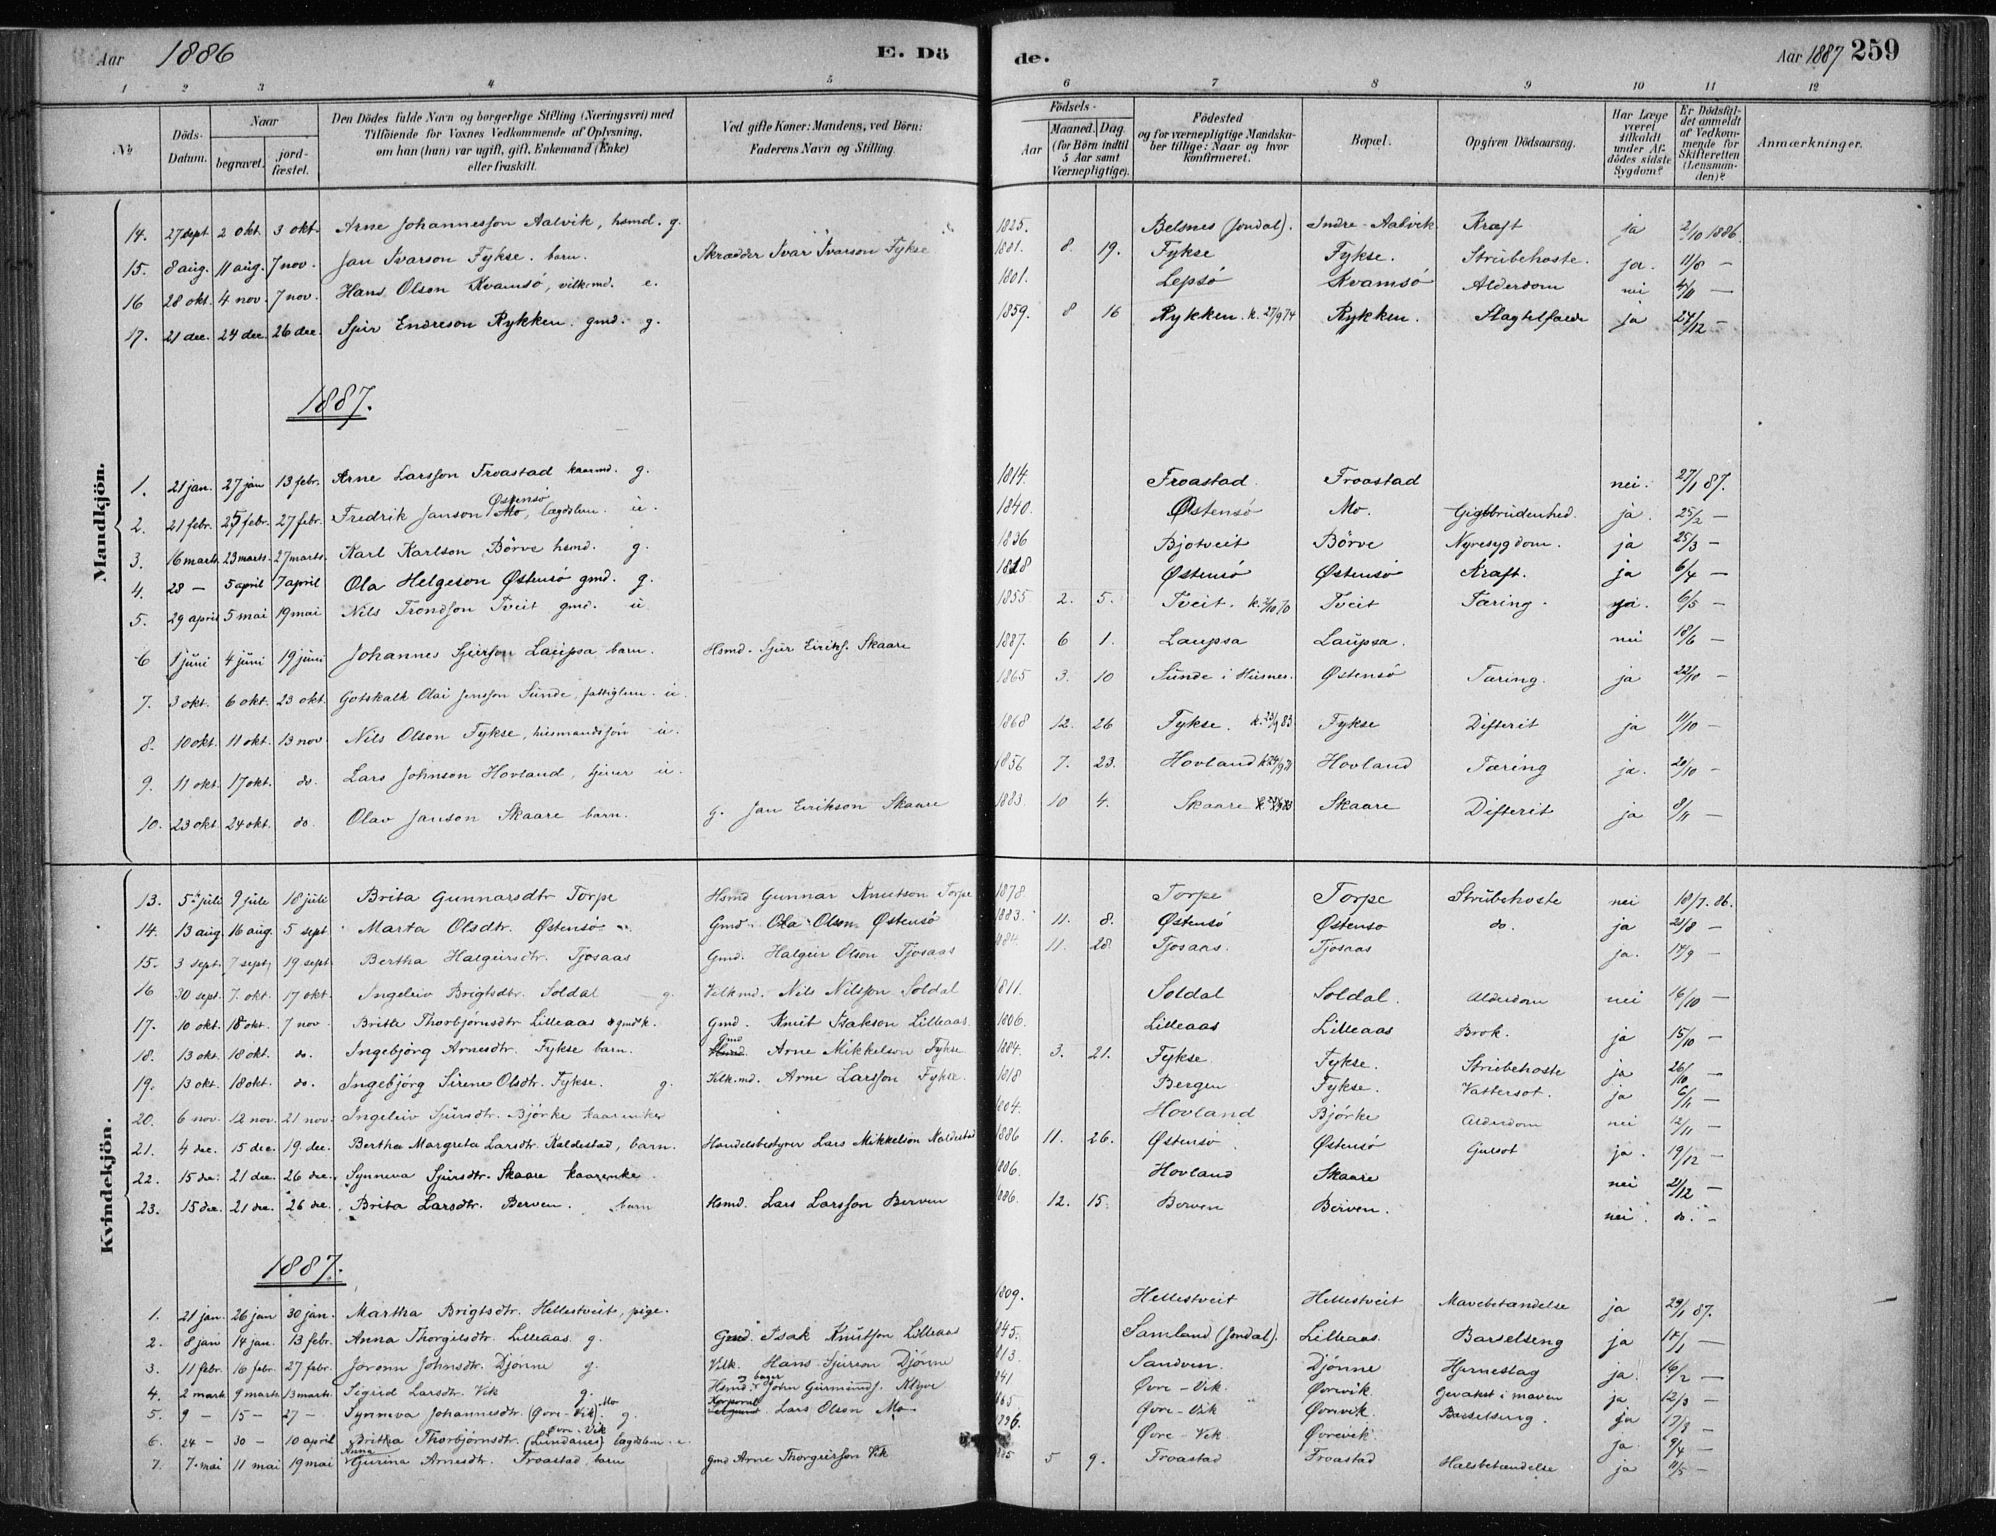 Aar 1886 E. Dö de. Aar 1887 259
1 2 3 4 5 6 7 8 9 10 11 12
№ Döds-Datum. Naar begravet. jord-fæstet. Den Dödes fulde Navn og borgerlige Stilling (Næringsvei) med Tilföiende for Voxnes Vedkommende af Oplysning, om han (hun) var ugift, gift, Enkemand (Enke) eller fraskilt. Ved gifte Koner: Mandens, ved Börn: Faderens Navn og Stilling. Födsels- Aar Maaned. Dag. (for Börn indtil 5 Aar samt Værnepligtige). Födested og for værnepligtige Mandskaber tillige: Naar og hvor konfirmeret. Bopæl. Opgiven Dödsaarsag. Har Læge været tilkaldt under Afdödes sidste Sygdom? Er Dödsfaldet anmeldt af Vedkommende for Skifteretten (Lensmanden)? Anmærkninger.
Mandkjön.
14. 27 sept 2 okt. 3 okt. Arne Johannesson Aalvik, hsmd. g. 1825. Belsnes (Jondal). Indre-Aalvik Kræft ja 2/10 1886.
15. 8 aug. 11 aug. 7 nov. Jan Ivarson Fykse. barn. Skrædder Ivar Ivarson Fykse 1881. 8. 19. Fykse Fykse. Strubehoste. ja. 11/8 —
16 28 okt. 4 nov. 7 nov. Hans Olson Kvamsö, vilkmd. e. 1801. Lepsö Kvamsö Alderdom nei 4/10 —
17. 21 dec. 24 dec. 26 dec. Sjur Endreson Rykken. gmd. g. 1859. 8 16 Rykken. k. 27/9 74 Rykken. Slagtilfælde ja 24/12 —
1887.
1. 21 jan. 27 jan 13 febr. Arne Larsson Froastad kaarmd. g. 1814. Froastad. Froastad nei. 27/1 87.
2. 21 febr. 25 febr. 27 febr. Fredrik Janson Østensö Mo, lægdslem. u. 1840. Østensö Mo. Gigtbrudenhed. ja. 25/2 —
3. 16 marts 23 marts. 27 marts. Karl Karlson Börve hsmd. g. 1836 Bjotveit Börve Nyresygdom. ja 25/3 —
4. 28 — 5 april 7 april Ola Helgeson Østensö gmd. g. 1818 Østensö Østensö Kræft. ja 6/4 —
5. 29 april 5 mai 19 mai Nils Trondson Tveit gmd. u 1855 2. 5. Tveit. k. 2/10 70 Tveit Tæring. ja. 6/5 —
6 1 juni 4 juni 19 juni Johannes Sjurson Laupsa, barn. Hsmd. Sjur Eiriks. Skaare 1887. 6 1. Laupsa Laupsa. nei 18/6 —
7. 3 okt. 6 okt. 23 okt. Gotskalk Olai Jensson Sunde, fattiglem. u. 1865 3. 10 Sunde i Husnes. Østensö Tæring. ja 22/10 —
8. 10 okt. 11 okt. 13 nov. Nils Olson Fykse, husmandssön u. 1868 12. 26 Fykse. k. 23/9 83 Fykse Difterit ja 11/10 —
9. 11 okt. 17 okt. do. Lars Johnson Hovland, tjener u. 1856 7. 23. Hovland Hovland Tæring ja. 20/10 —
10. 23 okt. 24 okt. do. Olav Janson Skaare barn. g. Jan Eirikson Skaare 1883. 10 4. Skaare Skaare Difterit ja 8/11 —
Kvindekjön.
13. 5te juli 9 juli 18 juli Brita Gunnarsdtr Torpe Hsmd Gunnar Knutson Torpe 1878 Torpe Torpe Strubehoste nei 18/7. 86.
14. 13 aug 16 aug. 5 sept Marta Olsdtr. Østensö Gmd. Ola Olson Østensö 1883. 11. 8. Østensö Østenso do. ja 21/8 —
15. 3 sept. 7 sept, 19 sept. Bertha Halgeirsdtr. Tjosaas Gmd. Halgeir Olson Tjosaas 1884. 11. 28. Tjosaas. Tjosaas ja. 17/9 —
16 30 sept. 7. okt. 17 okt. Ingeleiv Brigtsdtr. Soldal g. Vilkmd. Nils Nilsson Soldal 1811. Soldal Soldal. Alderdom nei 16/10 —
17. 10 okt. 18 okt. 7 nov. Britle Thorbjörnsdtr Lilleaas gmdsk. Gmd. Knut Isakson Lilleaas 1806. Lilleaas Lilleaas Brok. ja 15/10 —
18. 13 okt. 18 okt. do. Ingebjörg Arnesdtr. Fykse barn. Gmd Arne Mikkelson Fykse 1884. 3. 21. Fykse. Fykse. Strubehoste ja 26/10 —
19. 13 okt. 18 okt. do. Ingebjörg Sirene Olsdtr. Fykse. g. Vilk.md. Arne Larsson Fykse. 1818 Bergen Fykse. Vattersot. ja 6/11 —
20. 6 nov. 12 nov. 21 nov. Ingeleiv Sjursdtr. Björke kaarenke 1804. Hovland Björke Alderdom nei 12/11 —
21. 4 dec. 15 dec. 19. dec. Bertha Margreta Larsdtr. Kaldestad, barn. Handelsbestyrer Lars Mikkelson Kaldestad 1886 11. 26. Østensö Østensö Gulsot ja. 19/12 —
22. 15 dec. 21 dec. 26 dec. Synneva Sjursdtr. Skaare kaarenke 1806. Hovland Skaare nei 21/12 —
23. 15 dec. 21 dec. 26 dec. Brita Larsdtr. Berven. barn Hsmd. Lars Larsson Berven 1886. 12. 15. Berven Berven. nei. do. —
1887.
1. 21 jan. 26 jan 30 jan. Martha Brigtsdtr. Hellestveit, pige. 1809. Hellestveit Hellestveit Mavebetændelse ja 29/1 87.
2. 8 jan 14 jan. 13 febr. Anna Thorgilsdtr. Lilleaas g. Gmd. Isak Knutson Lilleaas 1845. Samland (Jondal). Lilleaas. Barselseng ja —
3. 11 febr. 16 febr. 27 febr. Joronn Johnsdtr. Djönne g. Vilk. Hans Sjurson Djönne 1813. Sandven. Djönne Hjerneslag ja. 16/2 —
4. 2 marts 9 marts 13 marts. Sigrid Larsdtr. Vik g. Hsmd. John Gurmunds. Klyve 1841 Øvre-Vik. Örevik. Gevækst i maven ja 12/3 —
5. 9 — 15 — 27 —. Synneva Johannesdtr. (Øvre-Vik). Mo g. Korporal Lars Olson Mo 1865 Øvre-Vik Örevik. Barselseng. ja 17/3 —
6. 24 — 30 — 10 april Britha Thorbjörnsdtr. (Lundanes) Øvre-Vik lægdslem. e. 1796. Øvre-Vik Örevik. ja. 9/4 —
7. 7. mai 11 mai 19 mai Anna Gurina Arnesdtr. Froastad, barn Gmd Arne Thorgeirson Vik 1885 5 9. Froastad Froastad Halsbetændelse ja 11/5 —